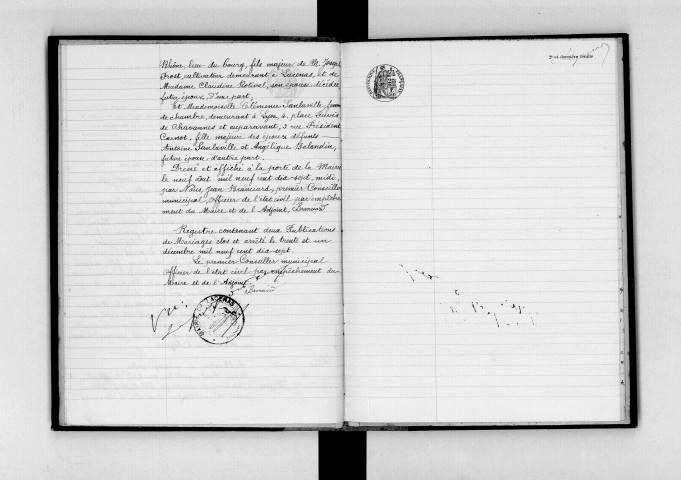 Rhône, lieu du bourg, fils majeur de M. Joseph
Prost, cultivateur demeurant à Lacenas, et de
Madame Claudine Rotival, son épouse décédée
futur époux, d'une part,
Et Mademoiselle Clémence Sanlaville, femme
de chambre, demeurant à Lyon, 4, place
de Chavannes et auparavant, 3 rue Président
Carnot, fille majeure des époux défunts
Antoine Sanlaville et Angélique Balandin,
future épouse d'autre part.
Dressé et affiché à la porte de la Mairie
le neuf Août mil neuf cent dix-sept, midi,
par Nous, Jean Branciard, premier Conseiller
municipal, officier de l'état civil par empêche-
ment du Maire et de l'Adjoint,
Registre contenant deux Publications
de Mariages clos et arrêté le trente et un
décembre mil neuf cent dix-sept.
Le premier Conseiller municipal
officier de l'état civil par empêchement du
Maire et de l'Adjoint.
Vu: